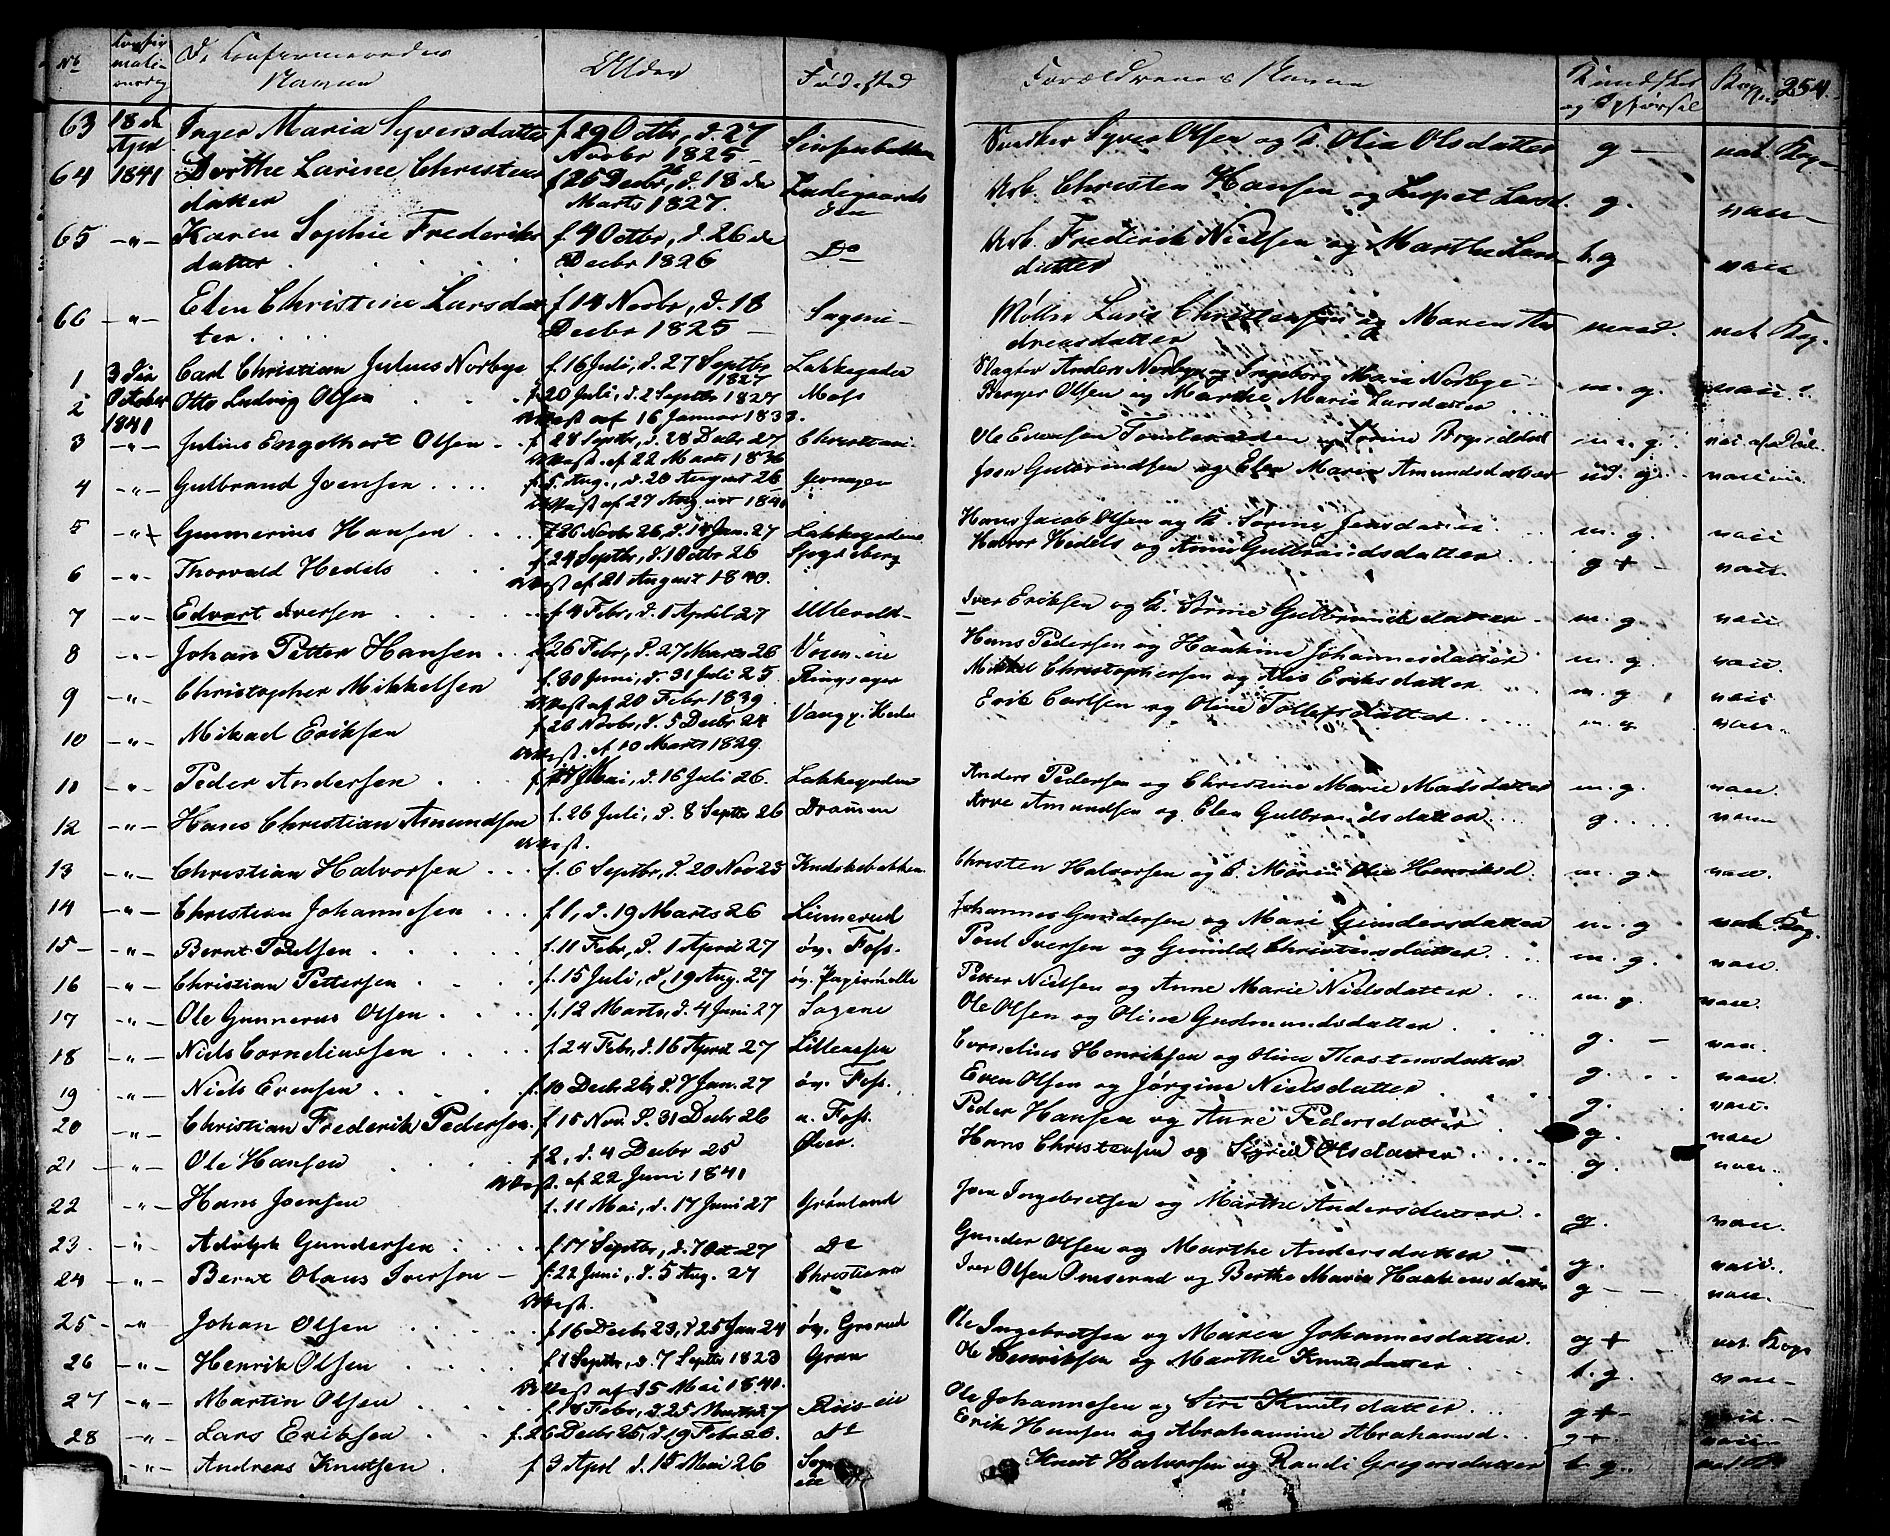 No Confirmationsdag De Confirmeredes Navne Alder Fødested Forældrenes Navne Kundskab og Opførsel Kopper 254.
63 18de April Inger Maria Syversdatter f 29 Octbr, d. 27 Novbr 1825 — Sinsenbakken Syver Olsen og K. Olia Olsdatter g — nat. Kop —
64 1841 Dorthe Larine Christensdatter f 25 Decbr, d. 18de Marts 1827. Ladegaardsøen Arb. Christen Hansen og Lispet Larsd. g. vac —
65 —"— Karen Sophie Frederiksdatter f. 4 Octbr, d. 26de Decbr 1826 Do Arb. Frederik Nielsen og Marthe Larsdatter t. g vacc
66 —"— Elen Christine Larsdatter. f. 14 Novbr, d. 18 Decbr 1825 — Sagene — Møller Lars Christensen og Maren Andreasdatter nat. Kop.
1 3die October 1841 Carl Christian Julius Norbye f. 16 Juli, d. 27 Septbr 1827 Lakkegaden Slagter Anders Norbye og Ingeborg Maria Norbye m. g. vacc.
2 Otto Ludvig Olsen f. 20 Juli, d. 2 Septbr 1827 Moss Berger Olsen og Marthe Maria Larsdatter
Attest af 16 Januar 1833.
3 —"— Julius Engelhart Olsen f. 28 Septbr, d. 28 Decbr 27 Christiania Ole Evensen og Sørine m. g.
Attest af 22 Marts 1836
4 —"— Gulbrand Joensen f. 5 Aug., d. 20 August 26 Jevnager Joen Gulbrandsen og Elen Maria Amundsdatter ud. g. vacc
Attest af 27 August 1840
5 —"— Gunnerius Hansen f. 26 Novbr 26, d. 14 Jan. 27 Lakkegaden Hans Jacob Olsen og K. Sørine Jensdatter m. g vacc
6 —"— Thorvald Hedels f. 24 Septbr, d. 1 Octbr 26 Spydeberg Halvor Hedels og Anne Gulbrandsdatter g + — vacc.
Attest af 21 August 1840.
7 —"— Edvart Iversen f. 4 Febr, d. 1 April 27 Ullevold — Iver Eriksen og K. Sørine Gulbrandsdatter m. g vacc
8 —"— Johan Petter Hansen f. 26 Febr, d. 27 Marts 26 Hans Pedersen og Haakine Johannesdatter m. g. vacc
9 —"— Christopher Mikkelsen f. 30 Juni, d. 31 Juli 25 Ringsager Mikkel Christophersen og Alis Eriksdatter m. g. vacc
Attest af 20 Febr 1839.
10 —"— Mikael Eriksen f. 26 Novbr, d. 5 Decbr 24 Vang p. Hede Erik Carlsen og Oline Tollefsdatter m. g vacc.
Attest. af 10 Marts 1829.
11 —"— Peder Andersen Mai, d. 16 Juli 26. Lakkegaden Anders Pedersen og Christine Marie Madsdatter m. g. vacc.
12 —"— Hans Christian Amundsen f. 26 Juli, d. 8 Septbr 26 Drammen Arve Amundsen og Elen Gulbrandsdatter g. vacc
Attest.
13 —"— Christian Halvorsen f. 6 Septbr, d. 20 Nov 25 Kudskebakken Christen Halvorsen og K. Maria Olia Henriksd. m. g. — vacc.
14 —"— Christian Johannesen f. 1, d. 19 Marts 26 Linnerud Johannes Gundersen og Mari Gundersdatter m. g nat. Kop.
15 — —"— Bernt Poulsen f. 11 Febr, d. 1 April 27 øv. Foss. Poul Iversen og Gunild Christensdatter m. g. vacc.
16 —"— Christian Pettersen f. 15 Juli, d. 19 Aug. 27 øv. Papirmølle Petter Nielsen og Anne Marie Nielsdatter m. g. vacc.
17 —"— Ole Gunnerus Olsen f. 12 Marts, d. 4 Juni 27 Sagene Ole Olsen og Oline Gudmundsdatter g. — vacc.
18 —"— Niels Corneliussen f. 24 Febr, d. 16 April 27 Cornelius Henriksen og Oline Thorstensdatter g. vacc.
19 —"— Niels Evensen f. 10 Decbr 26, d. 7 Jan. 27 øv. Foss. Even Olsen og Jørgine Nielsdatter g. vacc.
20 —"— Christian Frederik Pedersen f. 15 Nov. d. 31 Decbr 26 n. Foss. Peder Hansen og Anne Pedersdatter g. vacc
21 —"— Ole Hansen f. 2, d. 4 Decbr 25 Øier. Hans Christensen og Sigrid Olsdatter g. vacc.
Attest. af 22 Juni 1841
22 —"— Hans Joensen f. 11 Mai, d. 17 Juni 27 Grønland Joen Ingebretsen og Marthe Andersdatter g. vacc.
23. —"— Adolph Gundersen f. 17 Septbr, d. 7 Oct. 27 Do Gunder Olsen og Marthe Andersdatter — g. vacc.
24 —"— Bernt Olaus Iversen — f. 22 Juni, d. 5 Aug. 27 Christiania Iver Olsen Omserud og Berthe Maria Haakensdatter g — — vacc. —
Attest.
25 — —"— Johan Olsen f. 16 Decbr 23, d. 25 Jan 24 øv. Grorud Ole Ingebretsen og Maren Johannesdatter. g + nat. Kop.
26 —"— Henrik Olsen f. 1 Septbr, d. 7 Septbr 1823 Gran Ole Henriksen og Marthe Knutsdatter t. g. vacc —
Attest af 15 Mai 1841.
27 —"— Martin Olsen Febr, d. 25 Marts 27 Riis-eie Ole Johannesen og Siri Knutsdatter g + — vacc. —
28 —"— Lars Eriksen f. 26 Decbr 25, d. 19 Febr 26. Do Erik Hansen og Abrahamine Abrahamsd. g + vacc —
—"— Andreas Knutsen f 9 April d. 15 Mai 26 Sogn eie Knut Halvorsen og Randi Gregersdatter t. g.